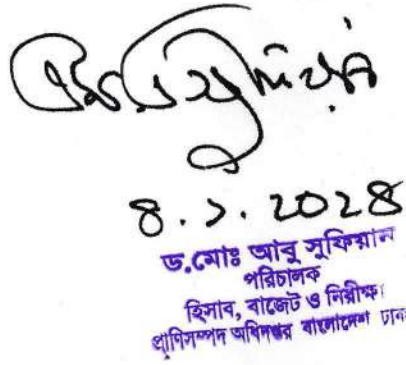 ৪.১.২০২৪
ড.মোঃ আবু সুফিয়ান
পরিচালক
হিসাব, বাজেট ও নিরীক্ষা
প্রাণিসম্পদ অধিদপ্তর বাংলাদেশ ঢাকা